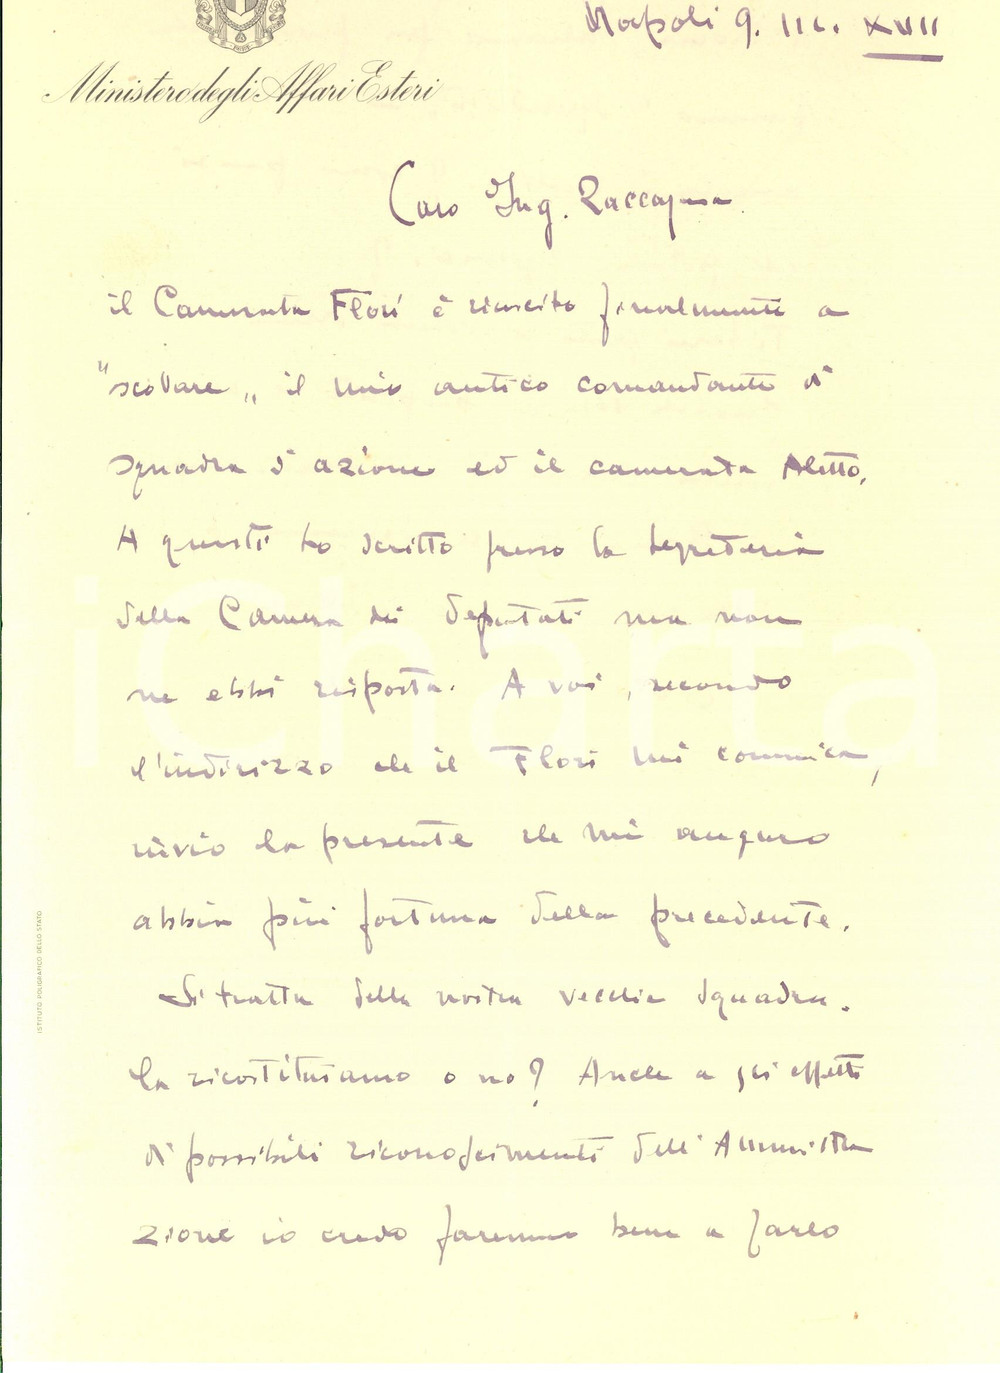 Napoli 9. III. XVII
Ministero degli Affari Esteri
Caro Ing. Zaccagna
il Camerata Flori è riuscito finalmente a
"scovare„ il mio antico comandante di
squadra d'azione ed il camerata Aletto.
A questi ho scritto presso la Segreteria
della Camera dei deputati ma non
ne ebbi risposta. A voi, secondo
l'indirizzo che il Flori mi comunica,
invio la presente che mi auguro
abbia più fortuna della precedente.
Si tratta della nostra vecchia squadra.
la ricostituiamo o no? Anche a gli effetti
di possibili riconoscimenti dell'Amministra
zione io credo faremmo bene a farlo
ISTITUTO POLIGRAFICO DELLO STATO
iCharta